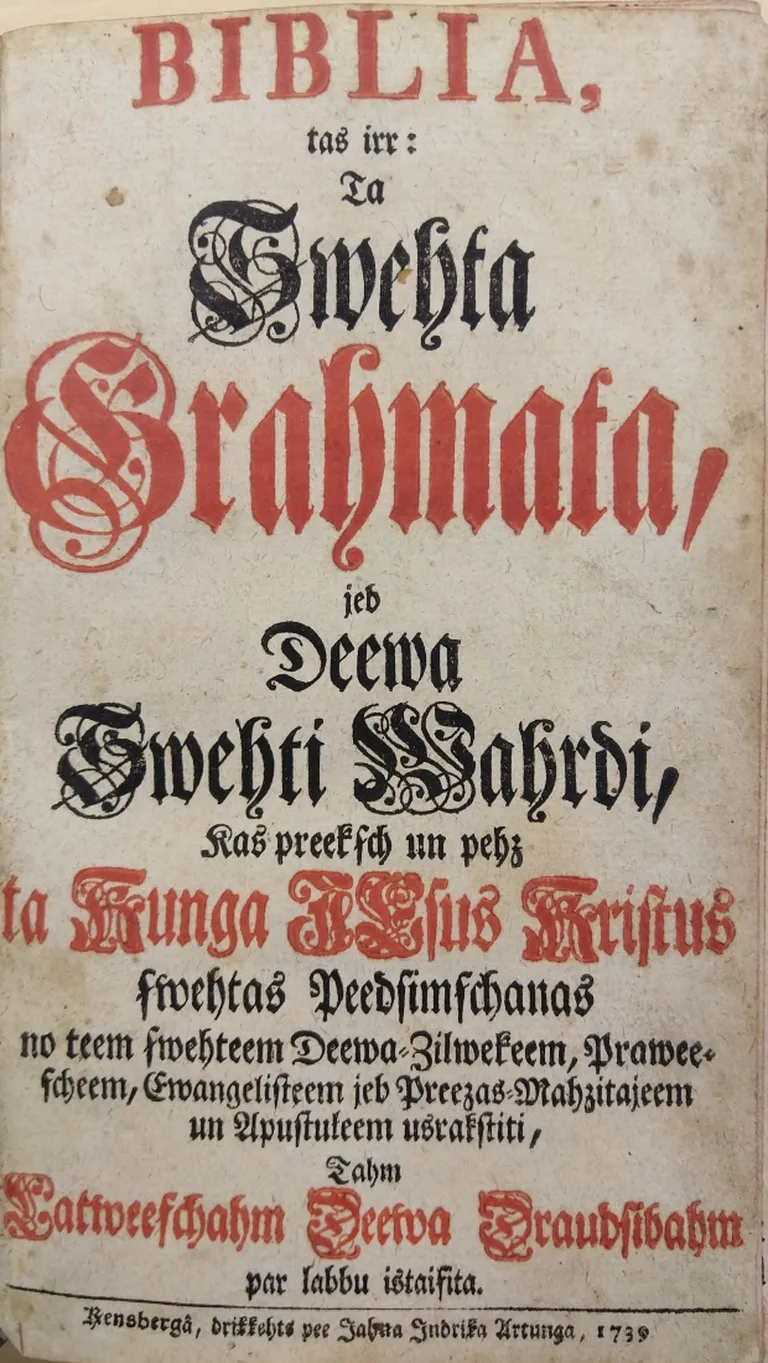 BIBLIA,
tas irr:
Ta
Swehta
Grahmata,
jeb
Deewa
Swehti Wahrdi,
Kas preekſch un pehz
ta Kunga JEſus Kriſtus
ſwehtas Peedſimſchanas
no teem ſwehteem Deewa-Zilwekeem, Prawee-
ſcheem, Ewangeliſteem jeb Preezas-Mahzitajeem
un Apuſtuleem usrakſtiti,
Tahm
Latweeſchahm Deewa Draudſibahm
par labbu istaiſita.
Kensbergâ, drikkehts pee Jahna Indrika Artunga, 1739